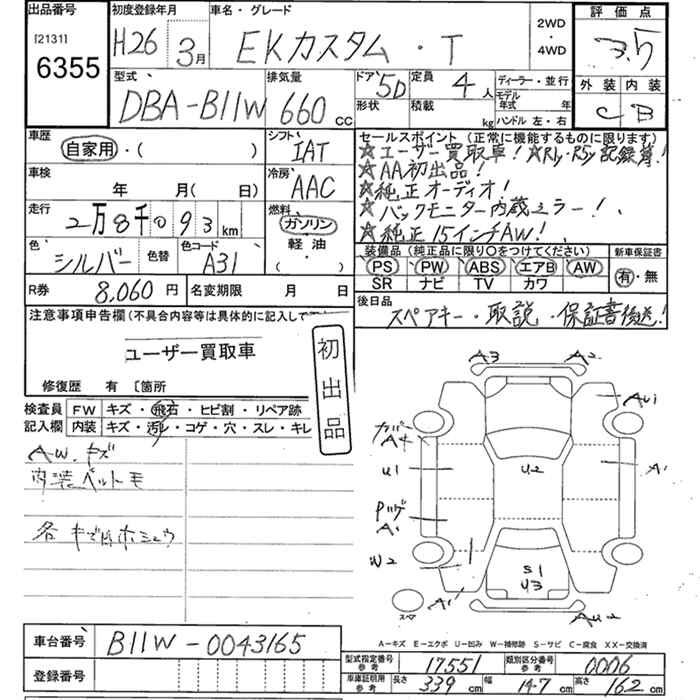 出品番号 初度登録年月 車名・グレード 2WD・4WD 評価点
[2131] 6355 H26 3月 EKカスタム・T 3.5
型式 排気量 ドア 定員 ディーラー・並行 外装 内装
DBA-B11W 660cc 5D 4人 モデル年式 年 C B
形状 積載 kg ハンドル 左・右
車歴 シフト セールスポイント (正常に機能するものに限ります)
自家用・( ) IAT ☆ユーザー買取車! ☆R1y・R5y記録簿!
車検 冷房 ☆AA初出品!
年 月(日) AAC ☆純正オーディオ!
走行 燃料 ☆バックモニター内蔵ミラー!
2万8千093km ガソリン ☆純正15インチAW!
色 色替 色コード 軽油・( ) 装備品 (純正品に限り○をつけてください) 新車保証書
シルバー A31 PS PW ABS エアB AW 有・無
SR ナビ TV カワ
R券 8,060円 名変期限 月 日 後日品
スペアキー・取説・保証書後送!
注意事項申告欄(不具合内容等は具体的に記入して下
ユーザー買取車
初出品
修復歴 有 〔箇所
検査員記入欄 FW キズ・飛石・ヒビ割・リペア跡
内装 キズ・汚レ・コゲ・穴・スレ・キレ
AW.キズ
内装ペット毛
A3 A2
AU1
カバーA4
U1 U2 A1
A1
W2
S1
U3
スペア A1 AU2
A-キズ E-エクボ U-凹み W-補修跡 S-サビ C-腐食 XX-交換済
車台番号 B11W-0043165
登録番号
型式指定番号参考 17551 類別区分番号参考 0006
車庫証明用参考 長さ 339cm 幅 147cm 高さ 162cm